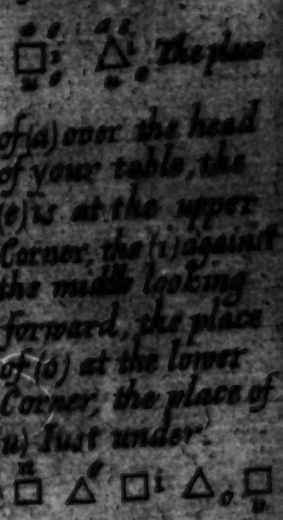 a e a e
i i The place
u o u o
of (a) over the head
of your table, the
(e) is at the upper
Corner, the (i) against
the middle looking
forward, the place
of (o) at the lower
Corner, the place of
u) Iust under.
e i o u